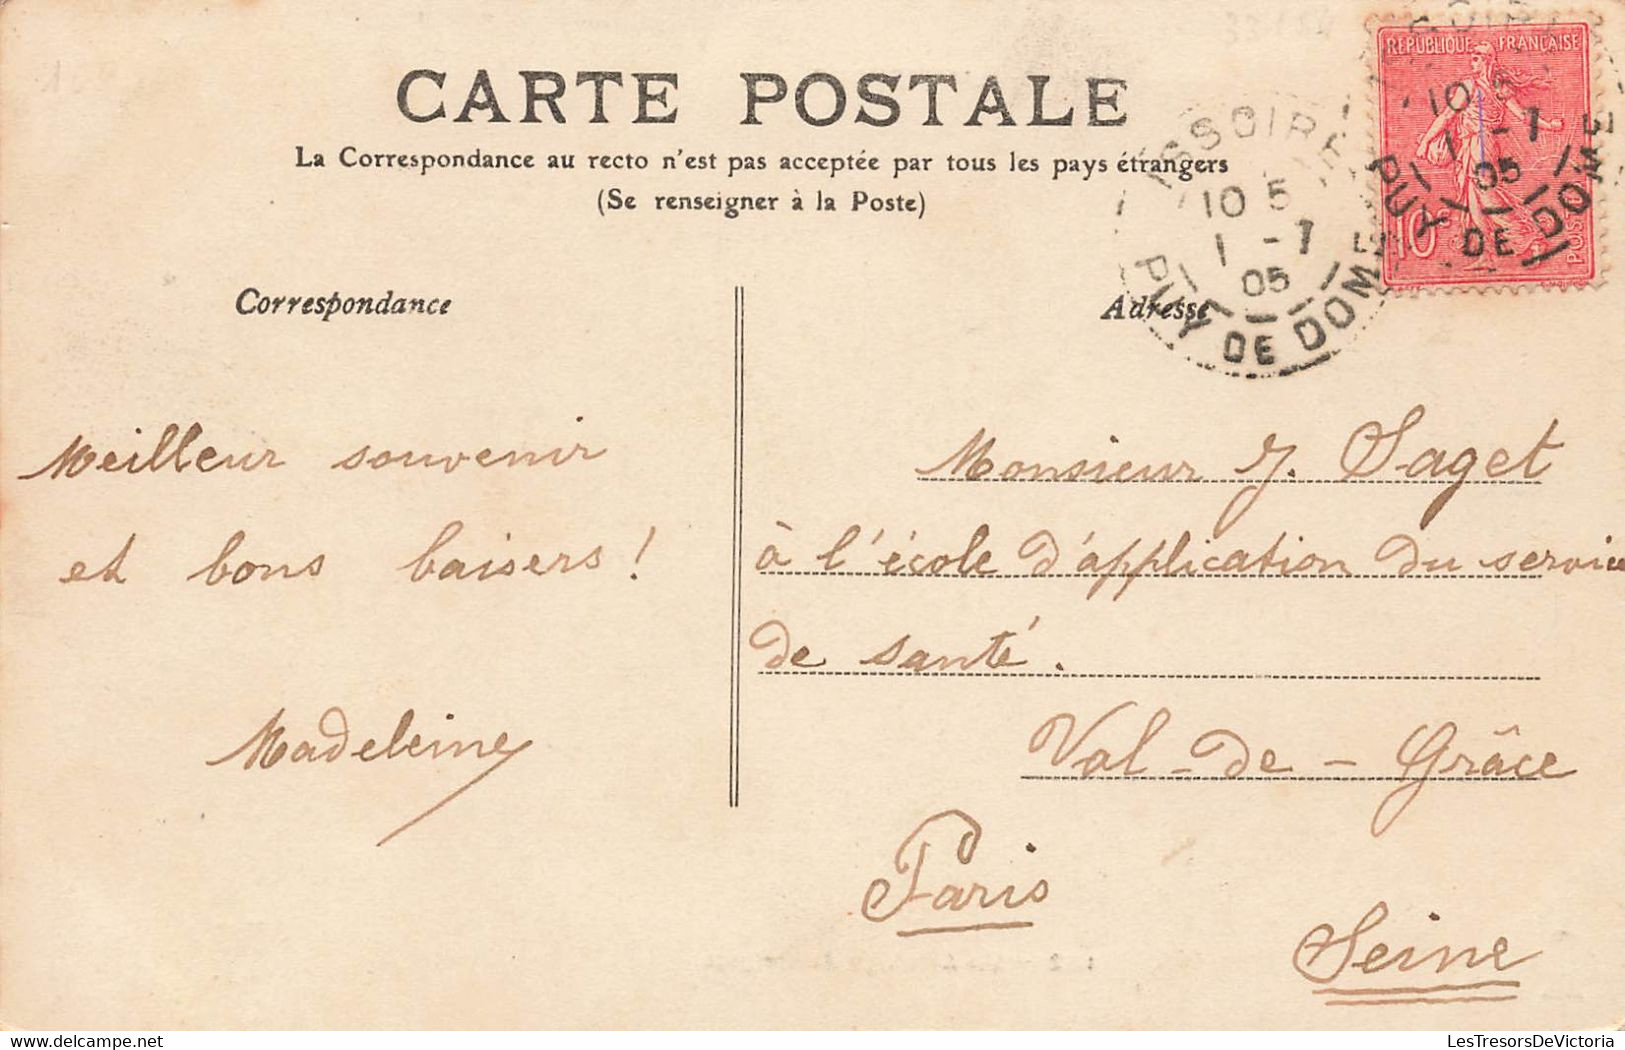 CARTE POSTALE
La Correspondance au recto n'est pas acceptée par tous les pays étrangers
(Se renseigner à la Poste)
REPUBLIQUE FRANÇAISE
10
POSTES
ISSOIRE
10 5
1 - 7
05
PUY DE DOME
10 5
1 - 7
05
PUY DE DOME
Correspondance
Meilleur souvenir
et bons baisers !
Madeleine
Adresse
Monsieur J. Saget
à l'école d'application du service
de santé.
Val-de-Grâce
Paris
Seine
www.LesTresorsDeVictoria.com